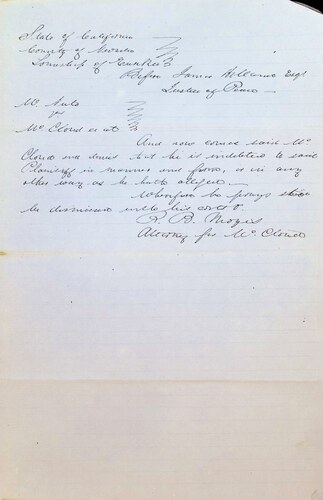 State of California
County of
Township of
Before James Williams Esqr
Justice of Peace
Mc
vs
Mc Cloud et al
And now comes said Mc
Cloud and denies that he is indebted to said
Plaintiff in manner and form, or in any
other way as he hath alleged.
Wherefore he prays
be dismissed with his costs
R. B.
Attorney for Mc Cloud